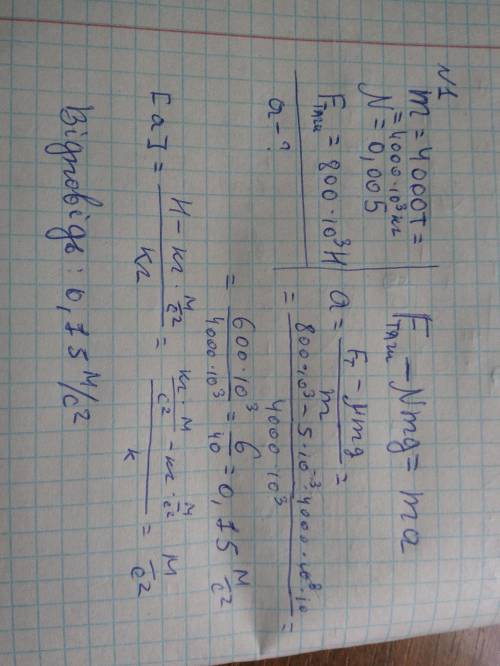 N1
m = 4000т =
= 4000·10³ кг
N = 0,005
Fтяги = 800·10³ Н
a - ?
Fтяги − Nmg = ma
a = Fт − μmg / m =
= 800·10³ − 5·10⁻³·4000·10³·10 / 4000·10³ =
= 600·10³ / 4000·10³ = 6 / 40 = 0,15 м/с²
[a] = Н − кг · м/с² / кг = кг · м/с² − кг · м/с² / к = м/с²
Відповідь: 0,15 м/с²